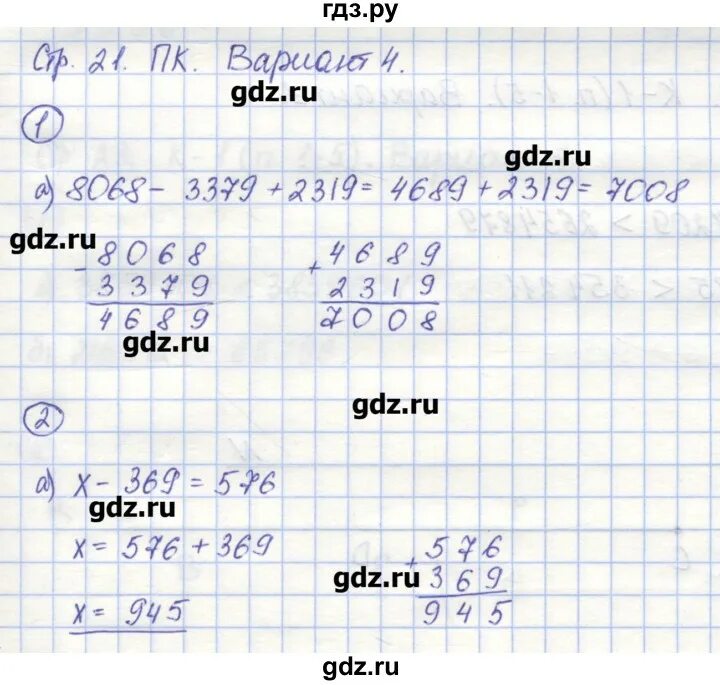 гдз.ру
Стр. 21. ПК. Вариант 4.
gdz.ru
1
gdz.ru
а) 8068 - 3379 + 2319 = 4689 + 2319 = 7008
gdz.ru
- 8068
3379
4689
+ 4689
2319
7008
gdz.ru
gdz.ru
2
а) x - 369 = 576
gdz.ru
x = 576 + 369
+ 576
369
945
gdz.ru
x = 945
gdz.ru